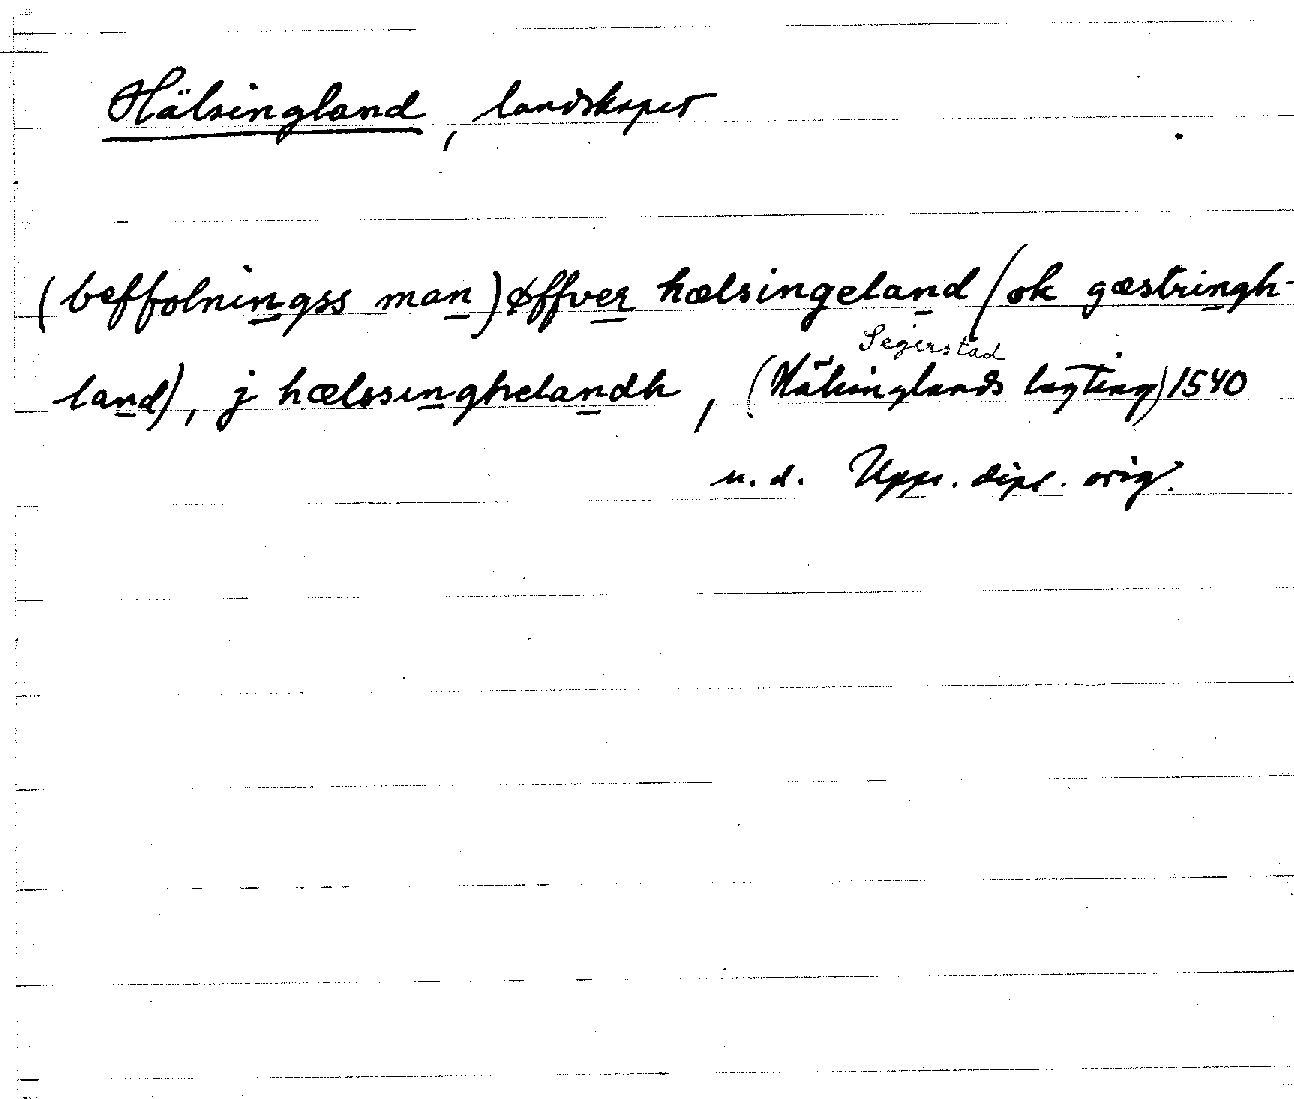 Hälsingland, landskapet
(beffolningss man) øffver hælsingeland (ok gæstringh-
Segerstad
land), j hælssinghelandh, (Hälsinglands lagting) 1540
u. d. Upps. dipl. orig.